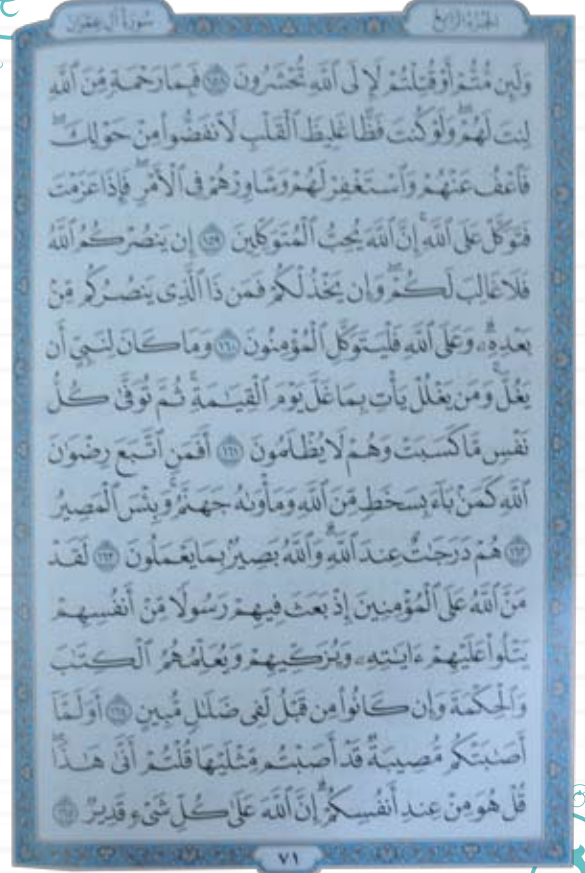 سُورَةُ آلِ عِمْرَان
الجُزْءُ الرَّابِعُ
وَلَئِن مُّتُّمْ أَوْ قُتِلْتُمْ لَإِلَى ٱللَّهِ تُحْشَرُونَ ١٥٨ فَبِمَا رَحْمَةٍ مِّنَ ٱللَّهِ
لِنتَ لَهُمْ ۖ وَلَوْ كُنتَ فَظًّا غَلِيظَ ٱلْقَلْبِ لَٱنفَضُّوا۟ مِنْ حَوْلِكَ ۖ
فَٱعْفُ عَنْهُمْ وَٱسْتَغْفِرْ لَهُمْ وَشَاوِرْهُمْ فِى ٱلْأَمْرِ ۖ فَإِذَا عَزَمْتَ
فَتَوَكَّلْ عَلَى ٱللَّهِ ۚ إِنَّ ٱللَّهَ يُحِبُّ ٱلْمُتَوَكِّلِينَ ١٥٩ إِن يَنصُرْكُمُ ٱللَّهُ
فَلَا غَالِبَ لَكُمْ ۖ وَإِن يَخْذُلْكُمْ فَمَن ذَا ٱلَّذِى يَنصُرُكُم مِّنۢ
بَعْدِهِۦ ۗ وَعَلَى ٱللَّهِ فَلْيَتَوَكَّلِ ٱلْمُؤْمِنُونَ ١٦٠ وَمَا كَانَ لِنَبِىٍّ أَن
يَغُلَّ ۚ وَمَن يَغْلُلْ يَأْتِ بِمَا غَلَّ يَوْمَ ٱلْقِيَـٰمَةِ ۚ ثُمَّ تُوَفَّىٰ كُلُّ
نَفْسٍ مَّا كَسَبَتْ وَهُمْ لَا يُظْلَمُونَ ١٦١ أَفَمَنِ ٱتَّبَعَ رِضْوَٰنَ
ٱللَّهِ كَمَنۢ بَآءَ بِسَخَطٍ مِّنَ ٱللَّهِ وَمَأْوَىٰهُ جَهَنَّمُ ۚ وَبِئْسَ ٱلْمَصِيرُ
١٦٢ هُمْ دَرَجَـٰتٌ عِندَ ٱللَّهِ ۗ وَٱللَّهُ بَصِيرٌۢ بِمَا يَعْمَلُونَ ١٦٣ لَقَدْ
مَنَّ ٱللَّهُ عَلَى ٱلْمُؤْمِنِينَ إِذْ بَعَثَ فِيهِمْ رَسُولًا مِّنْ أَنفُسِهِمْ
يَتْلُوا۟ عَلَيْهِمْ ءَايَـٰتِهِۦ وَيُزَكِّيهِمْ وَيُعَلِّمُهُمُ ٱلْكِتَـٰبَ
وَٱلْحِكْمَةَ وَإِن كَانُوا۟ مِن قَبْلُ لَفِى ضَلَـٰلٍ مُّبِينٍ ١٦٤ أَوَلَمَّآ
أَصَـٰبَتْكُم مُّصِيبَةٌ قَدْ أَصَبْتُم مِّثْلَيْهَا قُلْتُمْ أَنَّىٰ هَـٰذَا ۖ
قُلْ هُوَ مِنْ عِندِ أَنفُسِكُمْ ۗ إِنَّ ٱللَّهَ عَلَىٰ كُلِّ شَىْءٍ قَدِيرٌ ١٦٥
٧١